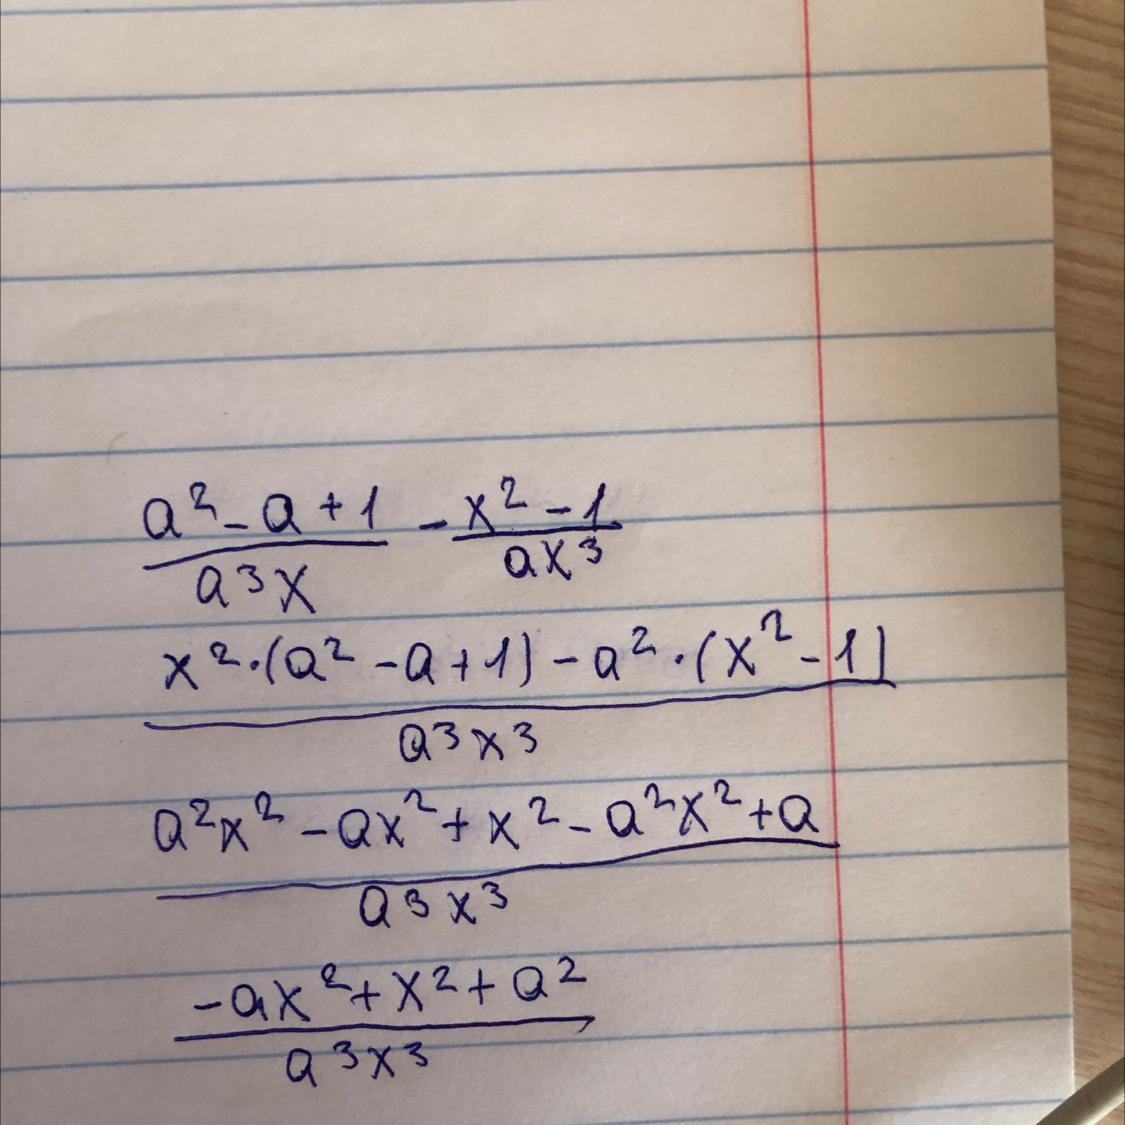 a² - a + 1 / a³x - x² - 1 / ax³
x²·(a² - a + 1) - a²·(x² - 1) / a³x³
a²x² - ax² + x² - a²x² + a / a³x³
-ax² + x² + a² / a³x³